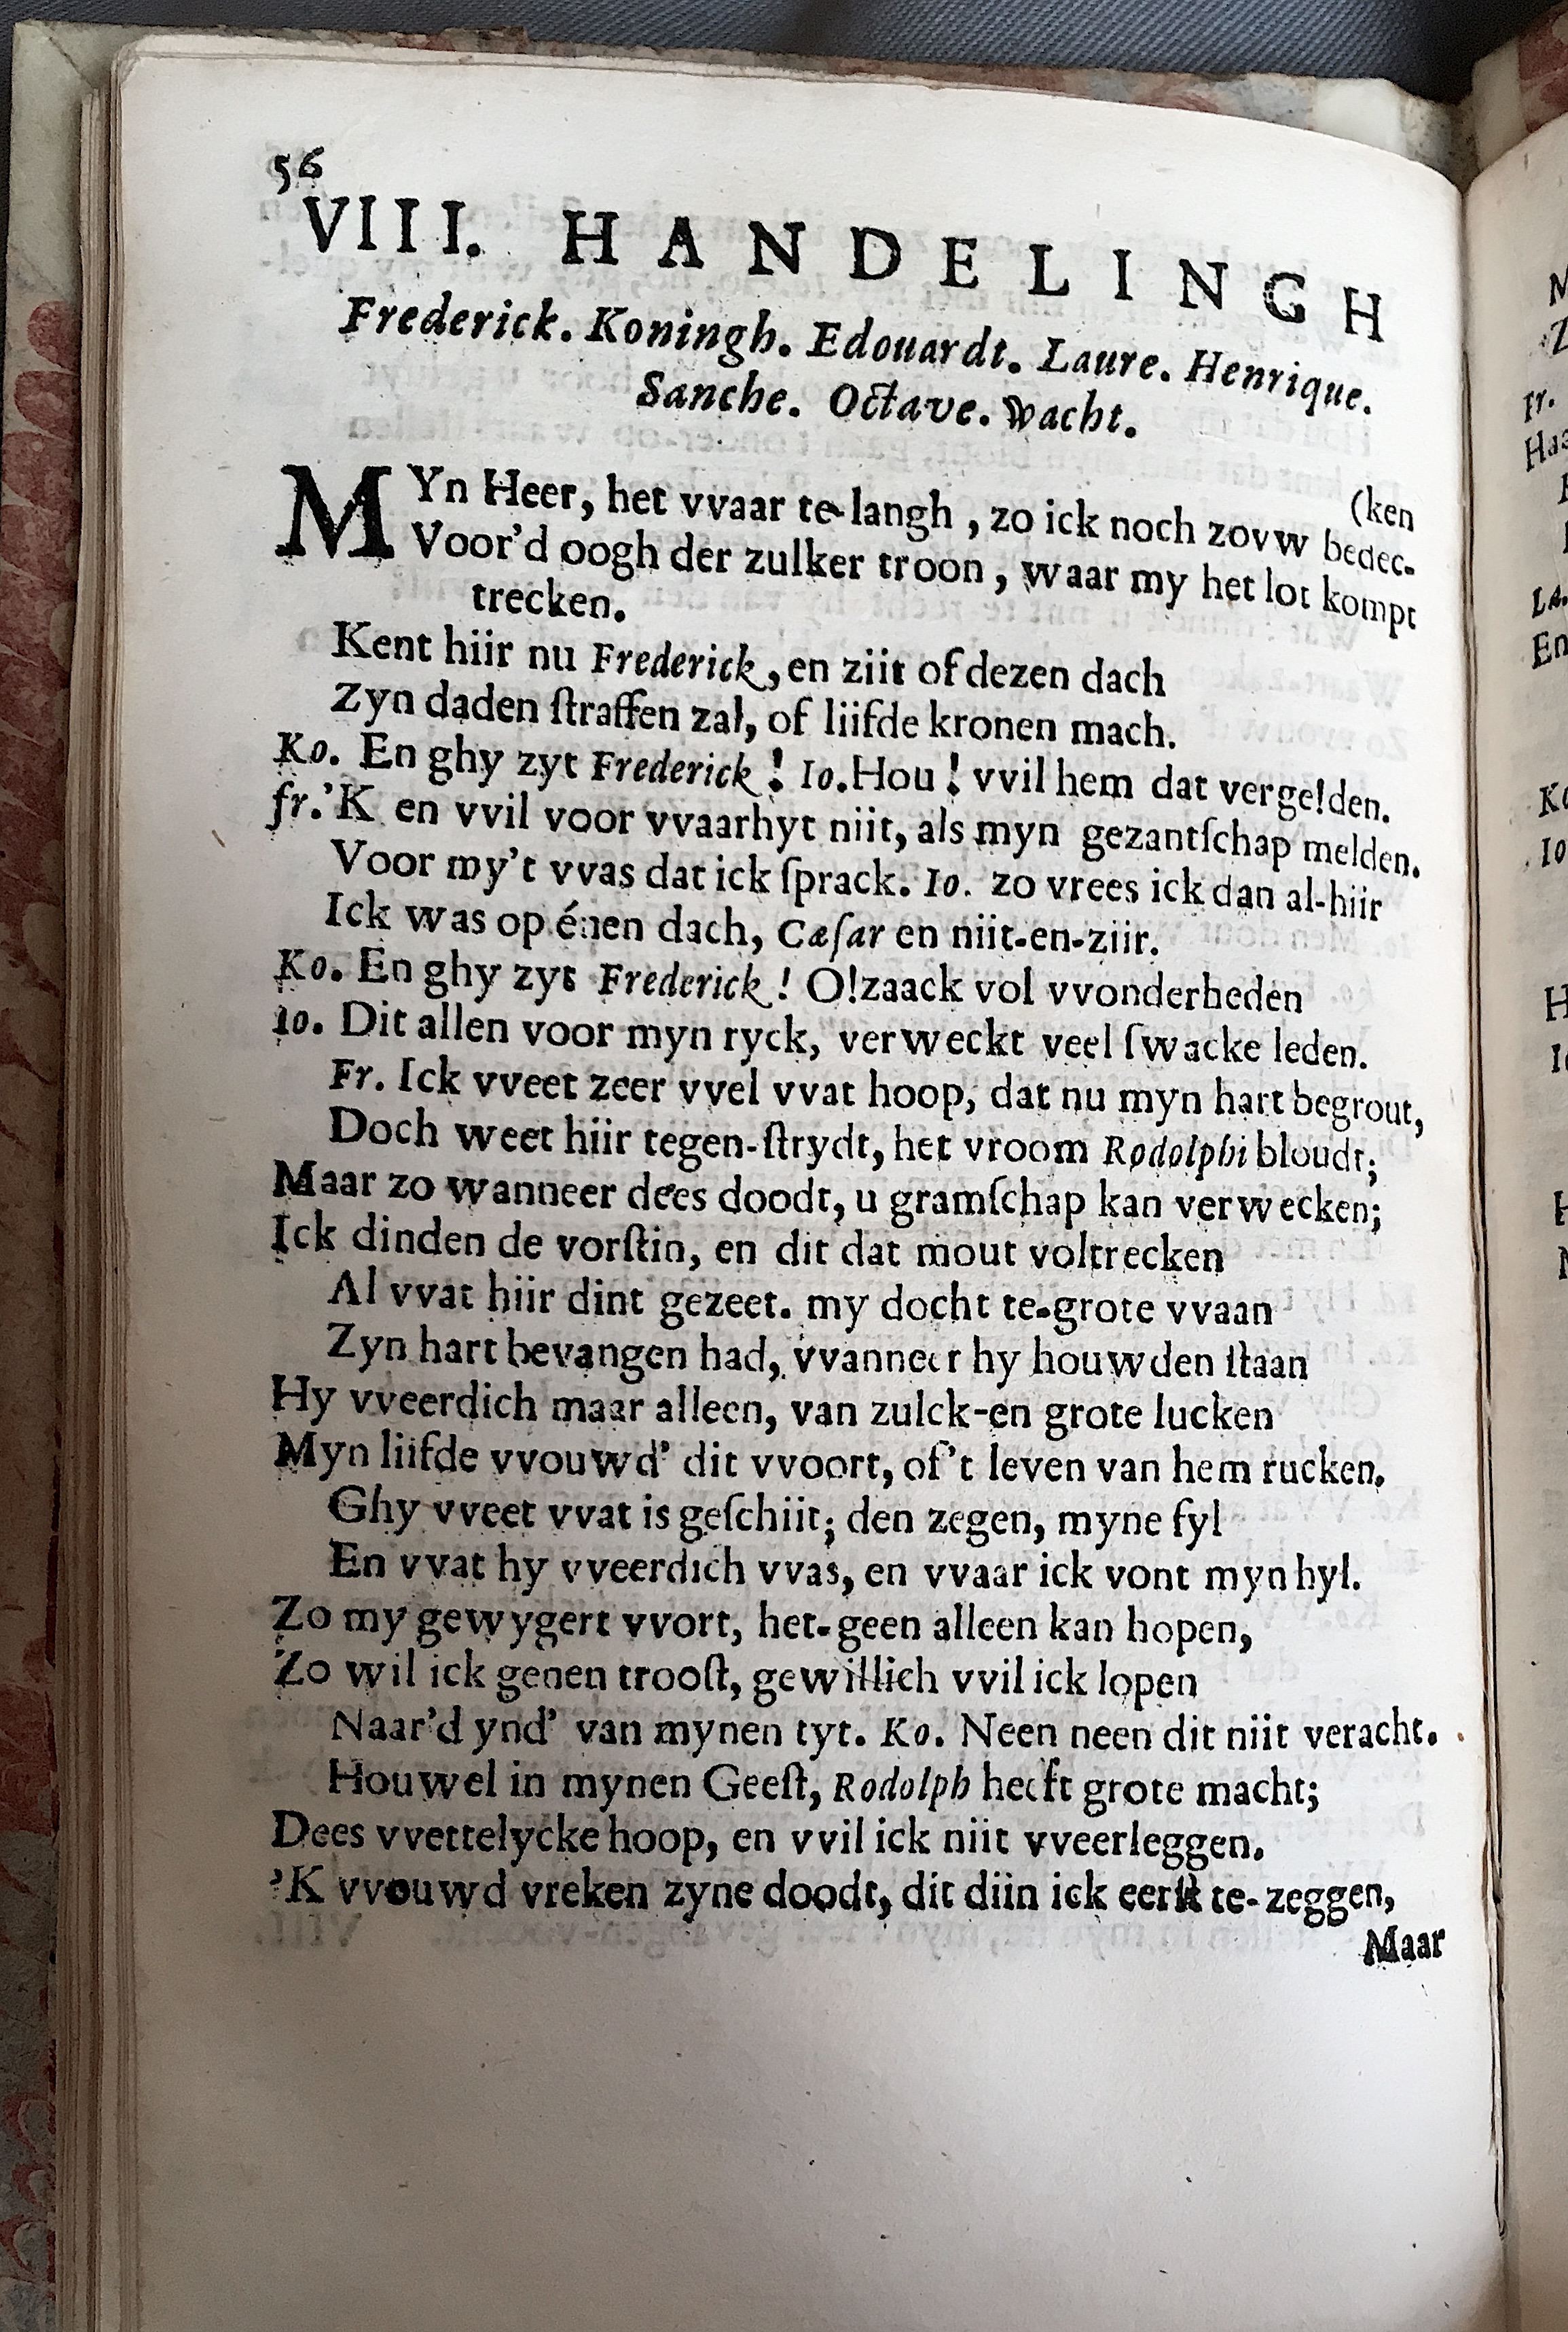 56
VIII. HANDELINGH
Frederick. Koningh. Edouardt. Laure. Henrique.
Sanche. Octave. Wacht.
(ken
MYn Heer, het vvaar te-langh, zo ick noch zovw bedec-
Voor'd oogh der zulker troon, waar my het lot kompt
trecken.
Kent hiir nu Frederick, en ziit of dezen dach
Zyn daden ſtraffen zal, of liifde kronen mach.
Ko. En ghy zyt Frederick! Io. Hou! vvil hem dat vergelden.
fr. 'K en vvil voor vvaarhyt niit, als myn gezantſchap melden.
Voor my't vvas dat ick ſprack. Io. zo vrees ick dan al-hiir
Ick was op énen dach, Cæſar en niit-en-ziir.
Ko. En ghy zyt Frederick! O!zaack vol vvonderheden
Io. Dit allen voor myn ryck, verweckt veel ſwacke leden.
Fr. Ick vveet zeer vvel vvat hoop, dat nu myn hart begrout,
Doch weet hiir tegen-ſtrydt, het vroom Rodolphi bloudt;
Maar zo wanneer dees doodt, u gramſchap kan verwecken;
Ick dinden de vorſtin, en dit dat mout voltrecken
Al vvat hiir dint gezeet. my docht te-grote vvaan
Zyn hart bevangen had, vvanneer hy houwden ſtaan
Hy vveerdich maar alleen, van zulck-en grote lucken
Myn liifde vvouwd' dit vvoort, of't leven van hem rucken.
Ghy vveet vvat is geſchiit; den zegen, myne fyl
En vvat hy vveerdich vvas, en vvaar ick vont myn hyl.
Zo my gewygert vvort, het-geen alleen kan hopen,
Zo wil ick genen trooſt, gewillich vvil ick lopen
Naar'd ynd' van mynen tyt. Ko. Neen neen dit niit veracht.
Houwel in mynen Geeſt, Rodolph heeft grote macht;
Dees vvettelycke hoop, en vvil ick niit vveerleggen.
'K vvouwd vreken zyne doodt, dit diin ick eerſt te-zeggen,
Maar